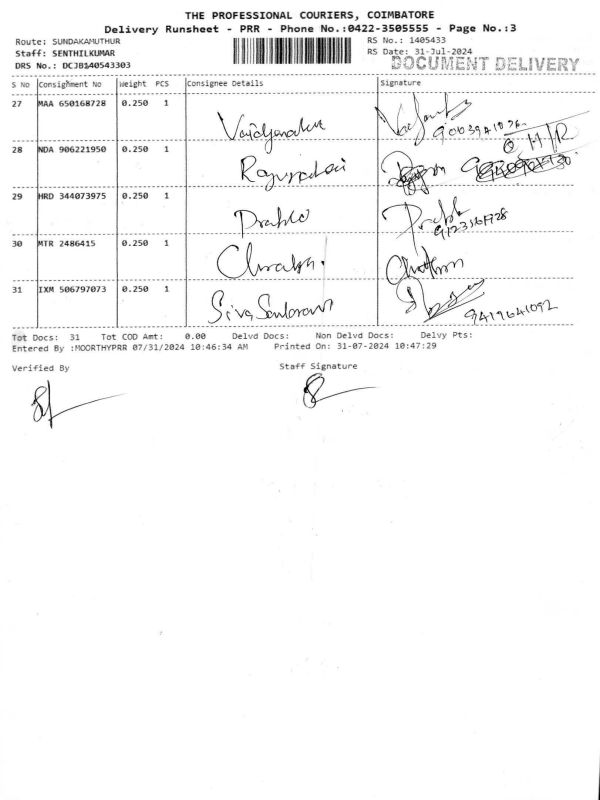 THE PROFESSIONAL COURIERS, COIMBATORE
Delivery Runsheet - PRR - Phone No.:0422-3505555 - Page No.:3
Route: SUNDAKAMUTHUR RS No.: 1405433
Staff: SENTHILKUMAR RS Date: 31-Jul-2024
DRS No.: DCJB140543303 DOCUMENT DELIVERY
S No Consignment No Weight PCS Consignee Details Signature
27 MAA 650168728 0.250 1
28 NDA 906221950 0.250 1
29 HRD 344073975 0.250 1 Prabhu
30 MTR 2486415 0.250 1
31 IXM 506797073 0.250 1 Siva Sankaran
9419641092
Tot Docs: 31 Tot COD Amt: 0.00 Delvd Docs: Non Delvd Docs: Delvy Pts:
Entered By :MOORTHYPRR 07/31/2024 10:46:34 AM Printed On: 31-07-2024 10:47:29
Verified By Staff Signature